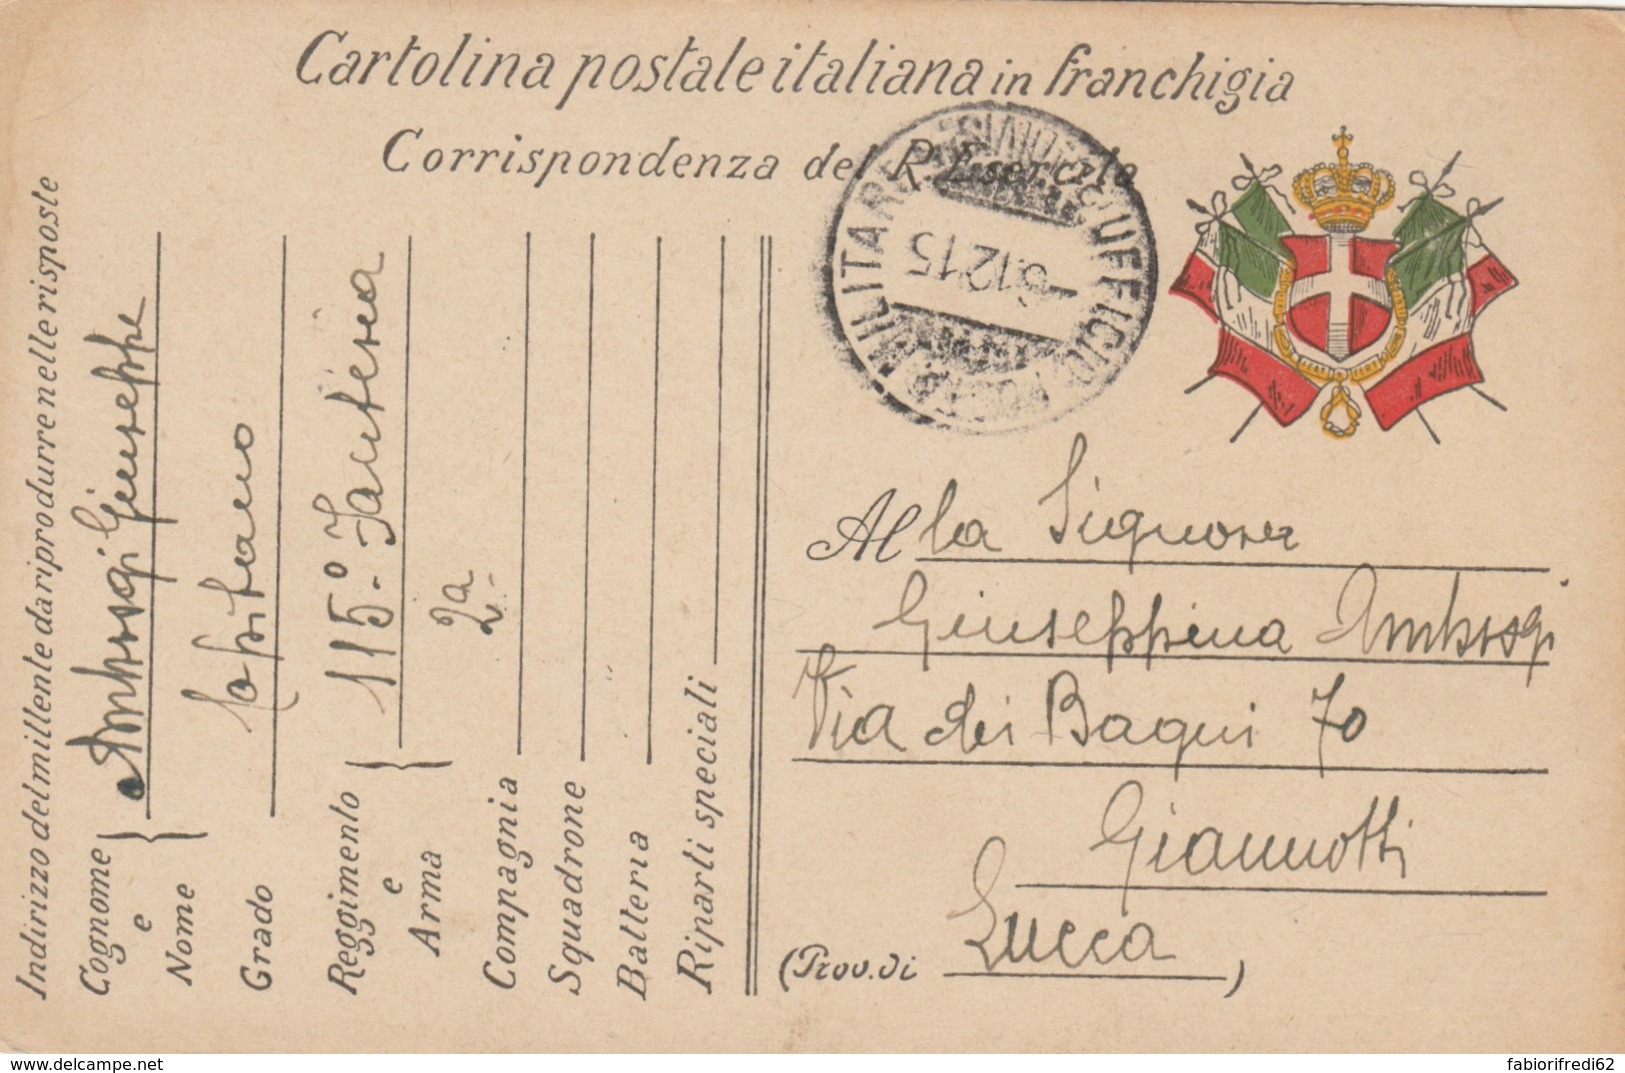 Cartolina postale italiana in franchigia
Corrispondenza del R. Esercito
UFFICIO POSTA MILITARE
6.12.15
FERT FERT
Indirizzo del mittente da riprodurre nelle risposte
Cognome e Nome Ambrogi Giuseppe
Grado Capitano
Reggimento e Arma 115.° Fanteria
Compagnia 2a
Squadrone
Batteria
Riparti speciali
Alla Signora
Giuseppina Ambrogi
Via dei Bagni 70
Giannotti
(Prov. di Lucca)
https://www.delcampe.net
fabiorifredi62